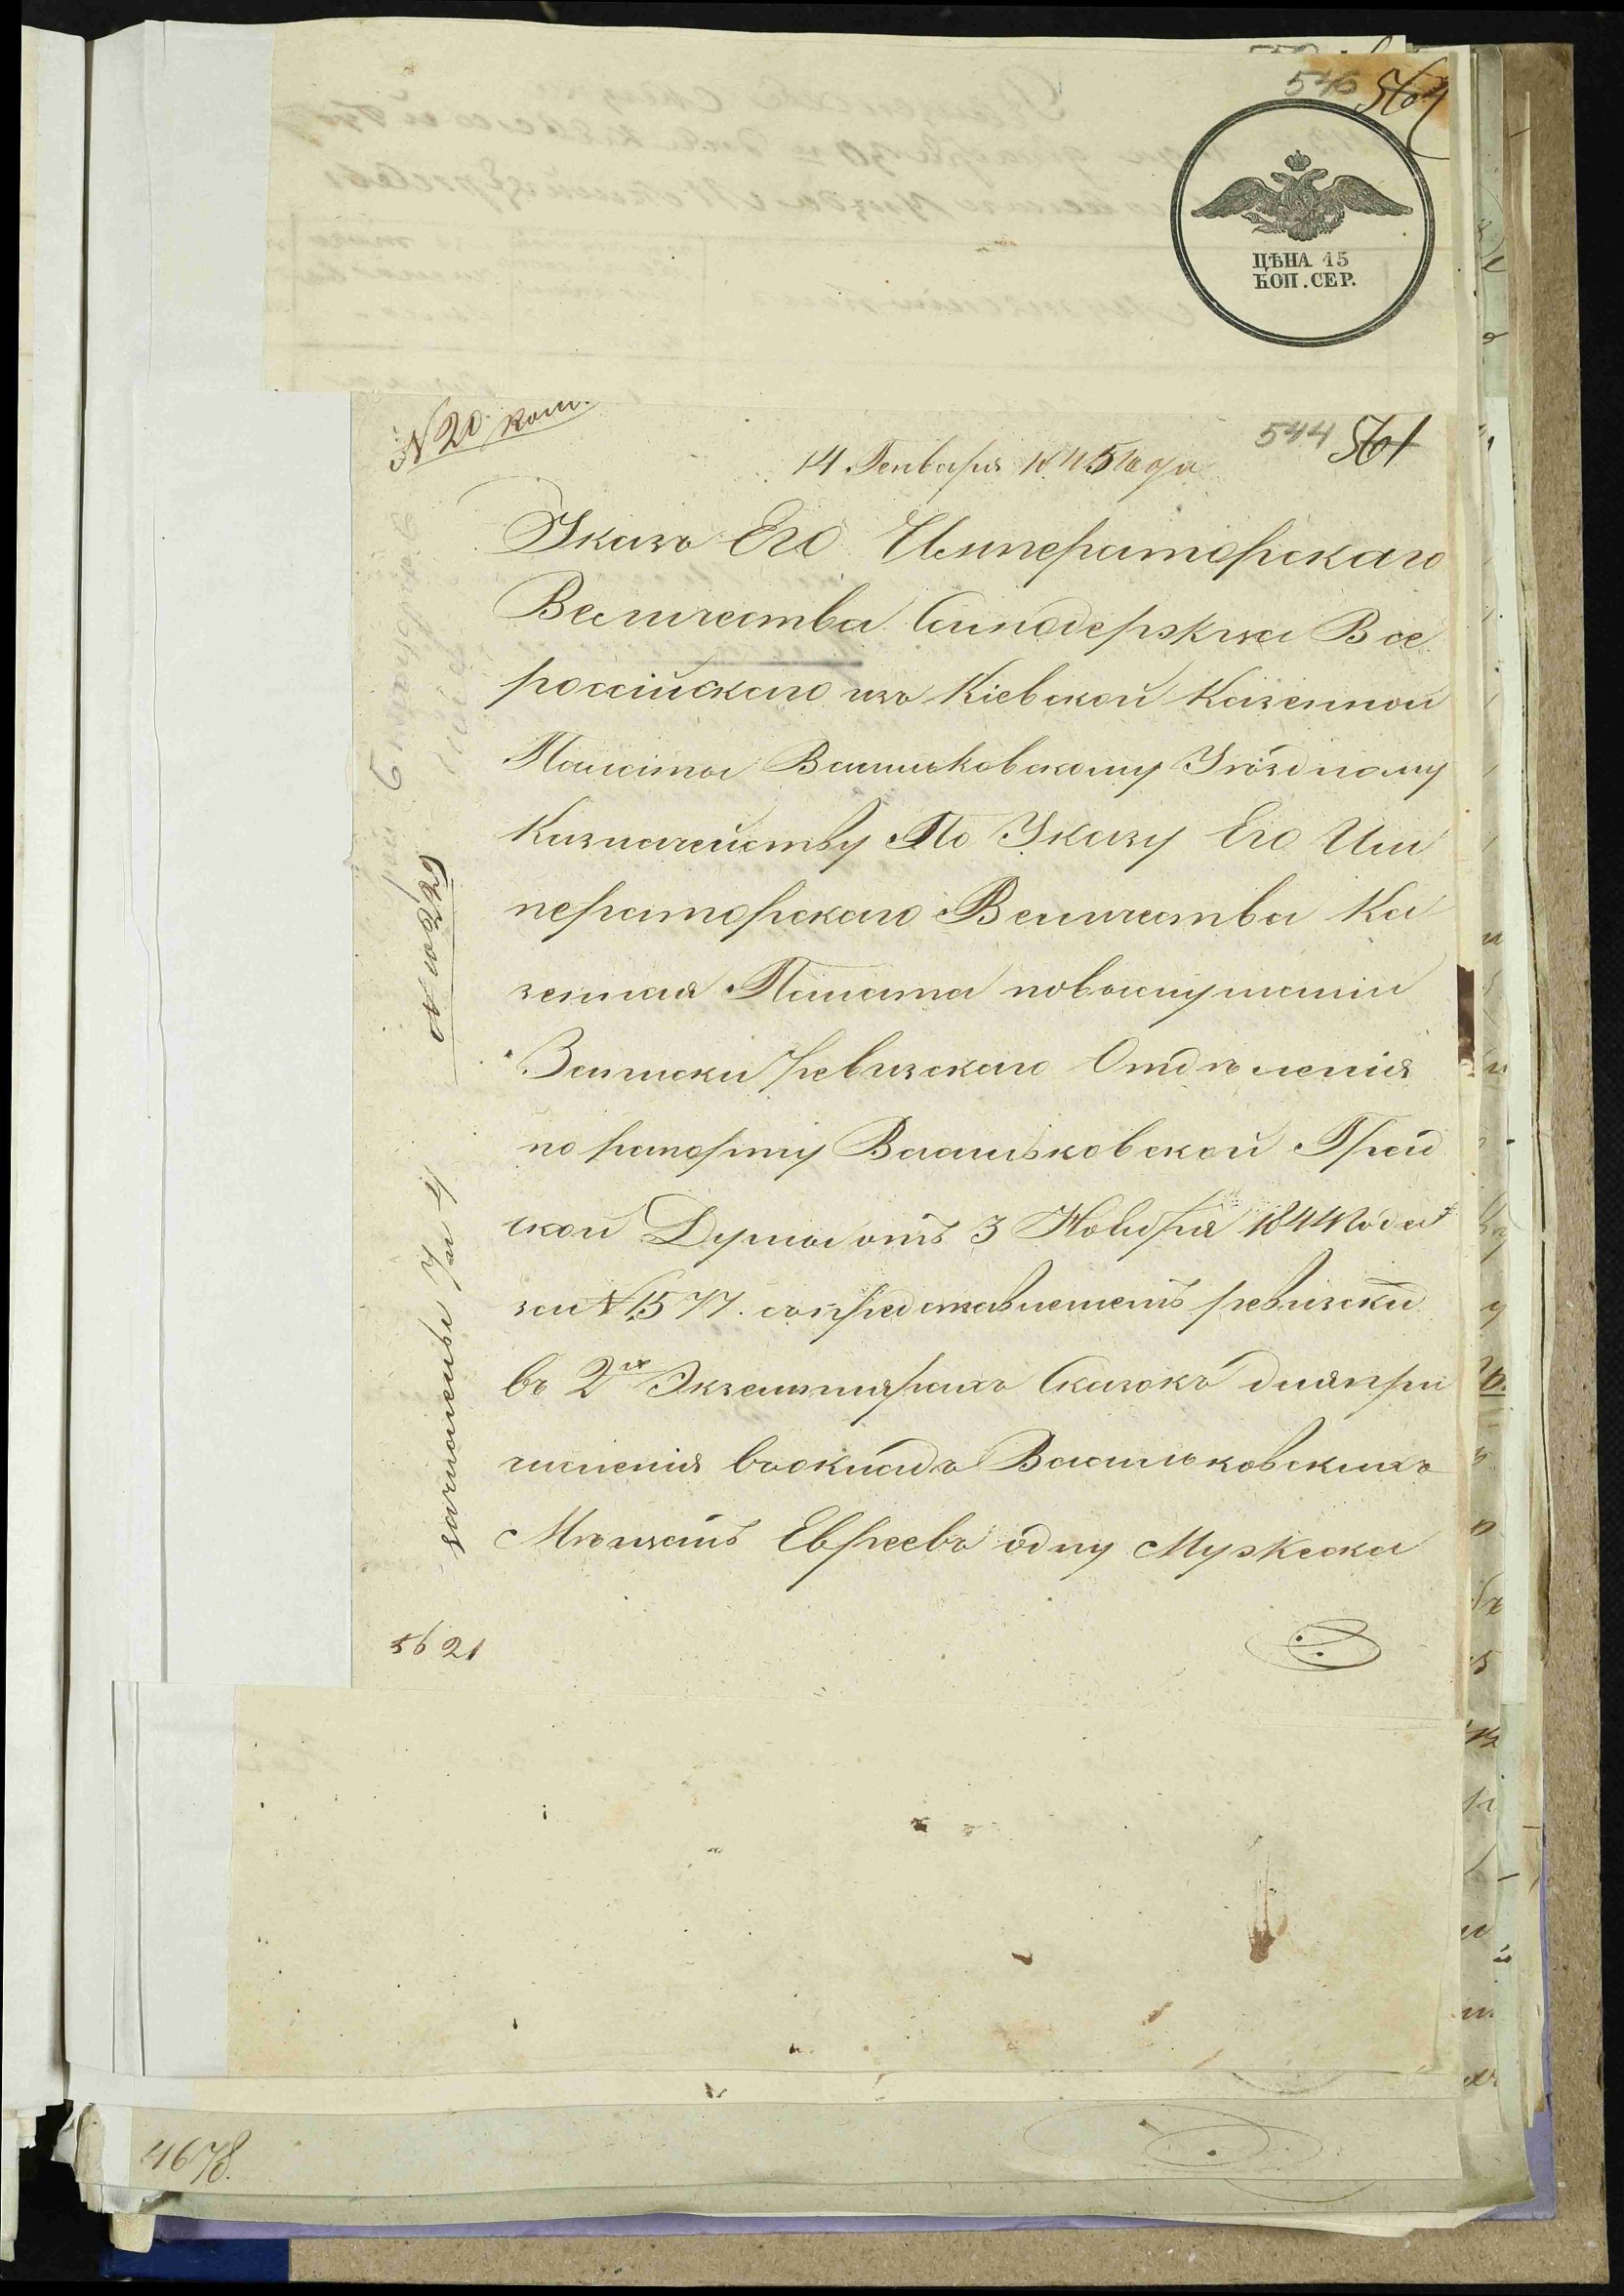 540 564
ЦѢНА 15
КОП. СЕР.
№ 20
544 561
14 Генваря 1845 года
Указъ Его Императорскаго
Величества Самодержца Все
россійскаго изъ Кіевской Казенной
Палаты Васильковскому Уѣздному
Казначейству По Указу Его Им
ператорскаго Величества Ка
зенная Палата повыслушаніи
Записки Ревизскаго Отдѣленія
по рапорту Васильковской Град
ской Думы отъ 3 Ноября 1844 года
за № 1577. съ представленіемъ ревизскихъ
въ 2хъ Экземплярахъ Сказокъ для при
численія въ окладъ Васильковскихъ
Мѣщанъ Евреевъ одну Мужеска
5621
4678.